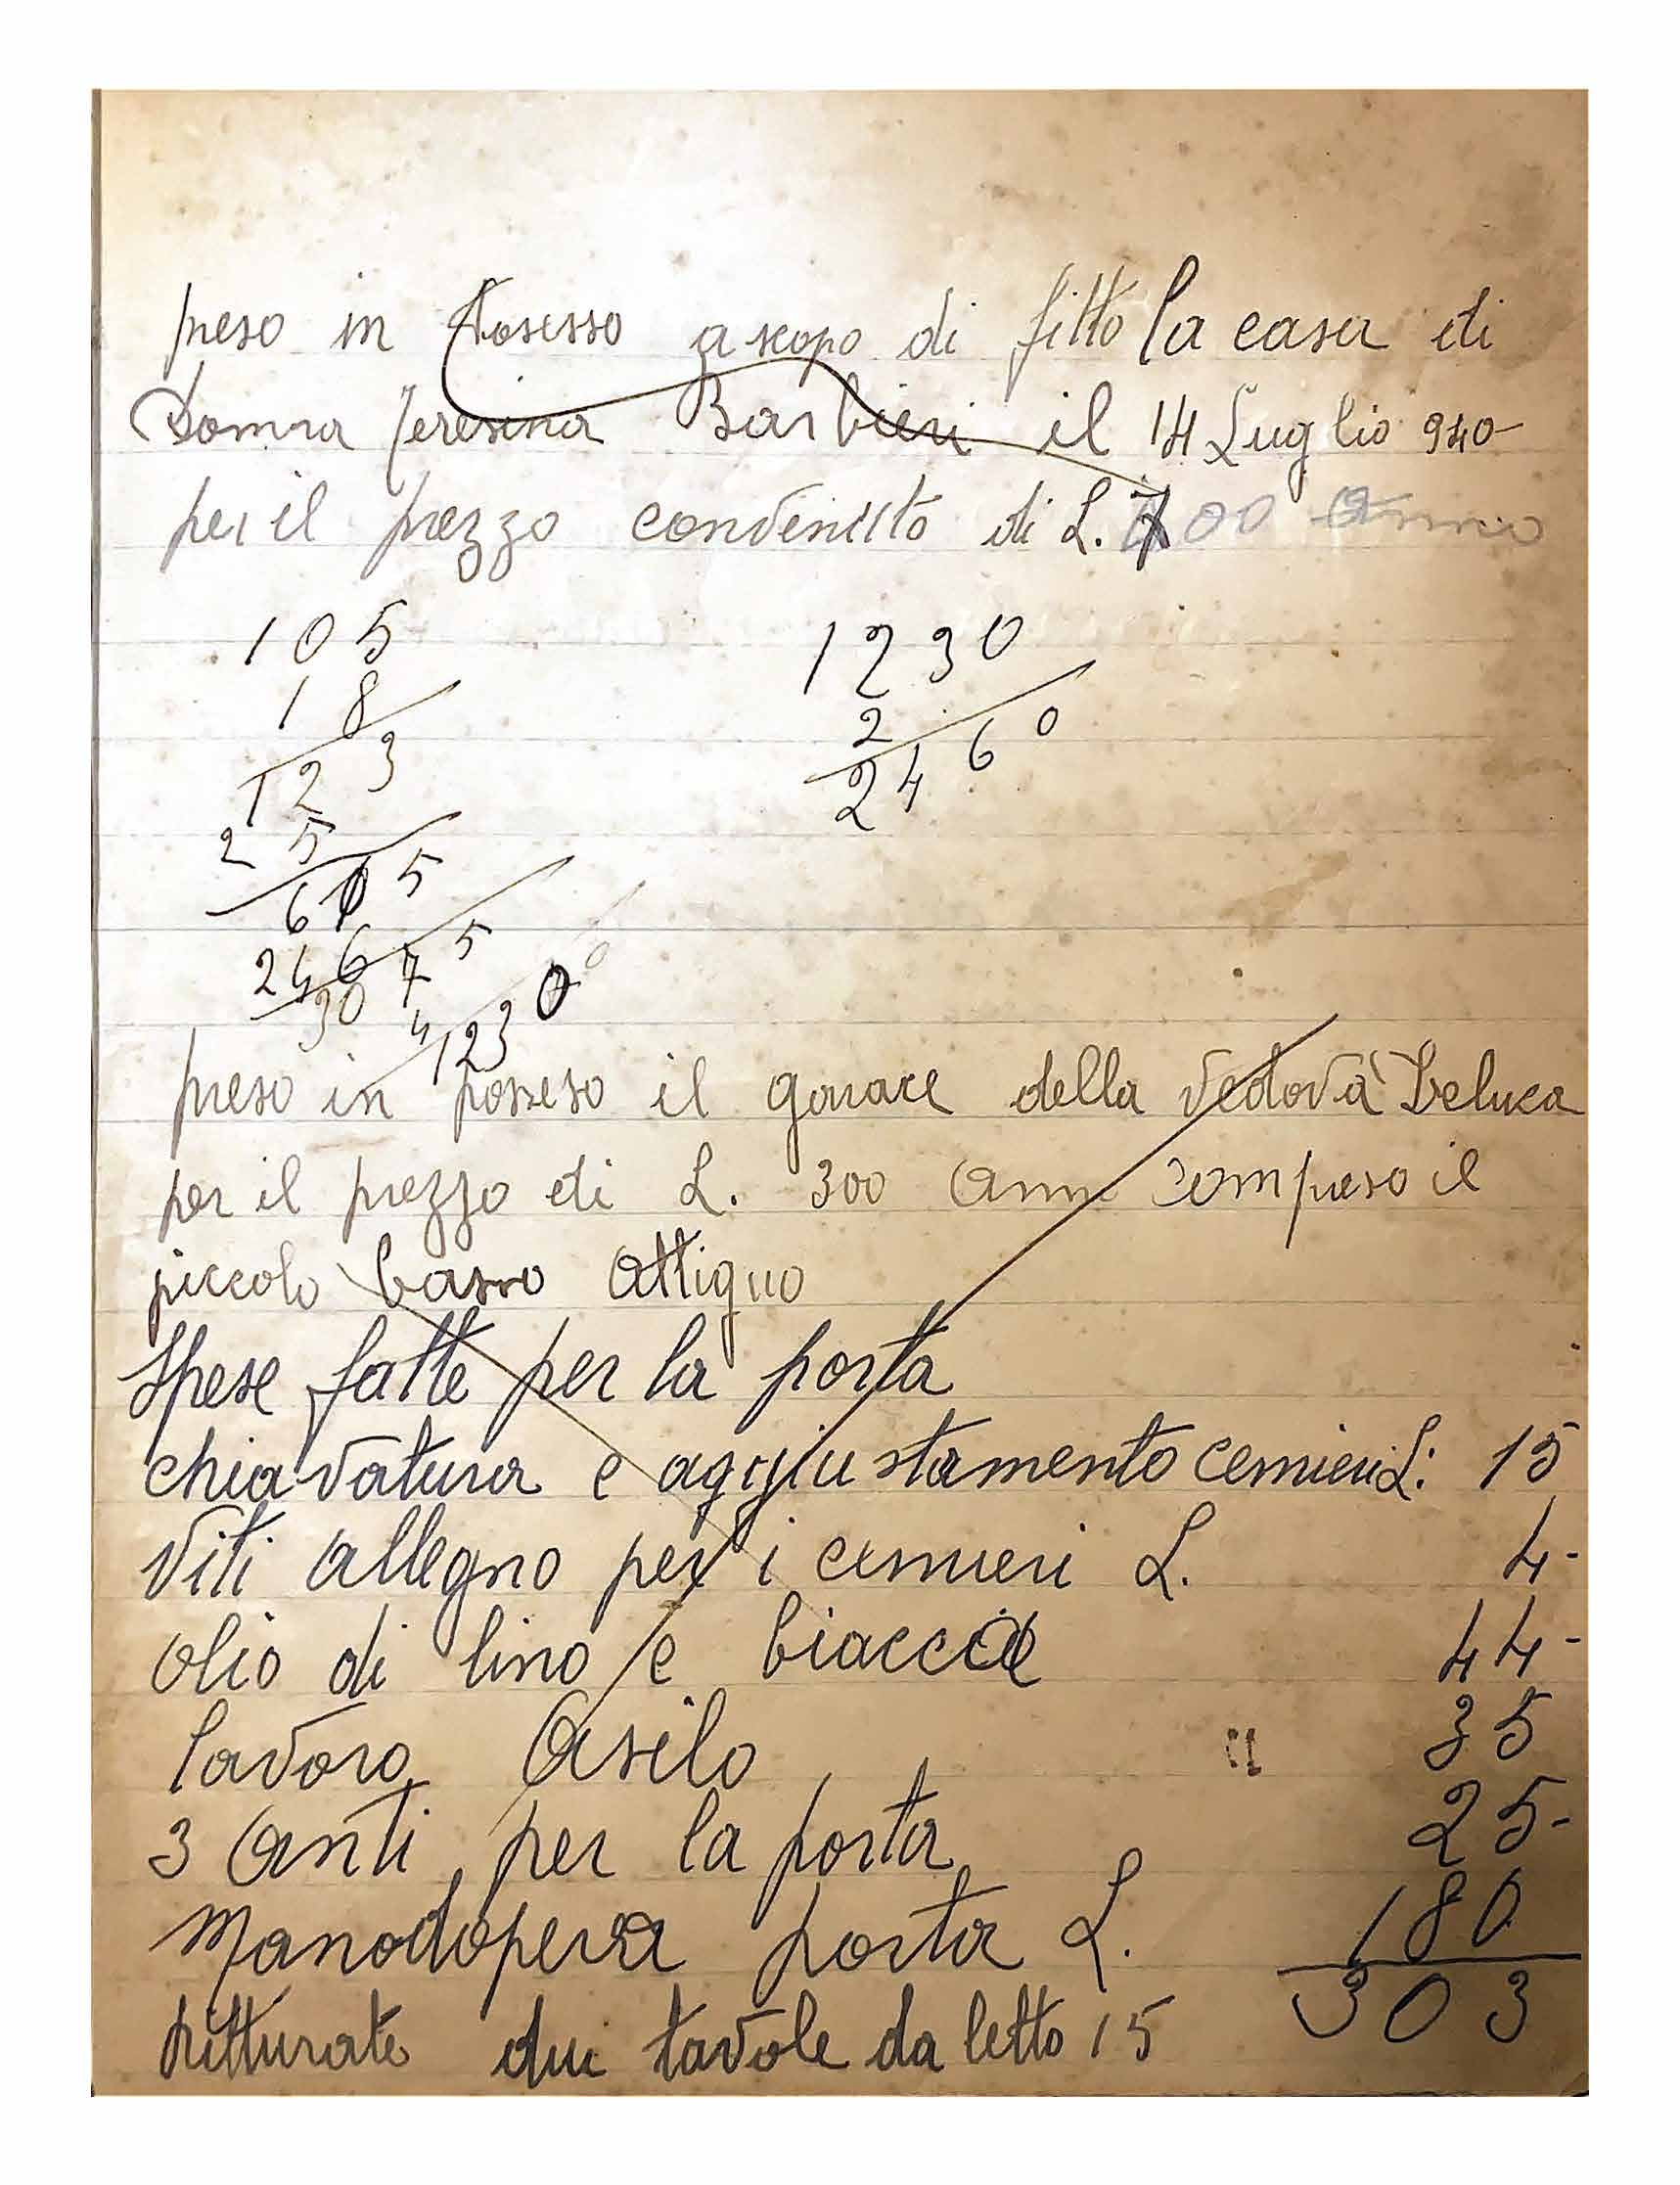 preso in Posesso a scopo di fitto la casa di
Donna Teresina Barbieri il 14 Luglio 940-
per il prezzo convenuto di L. 700 Annio
105
18
123
25
615
2467 5
30 7
4 1230
1230
2
2460
preso in posseso il garace della vedova Deluca
per il prezzo di L. 300 Ann compreso il
piccolo basso attiguo
Spese fatte per la porta
chiavatura e aggiustamento cernieri L: 15
viti allegno per i cernieri L. 4-
olio di lino e biacca 44-
lavoro Asilo " 35
3 Anti per la porta 25-
Manodopera porta L. 180
303
pitturate due tavole da letto 15